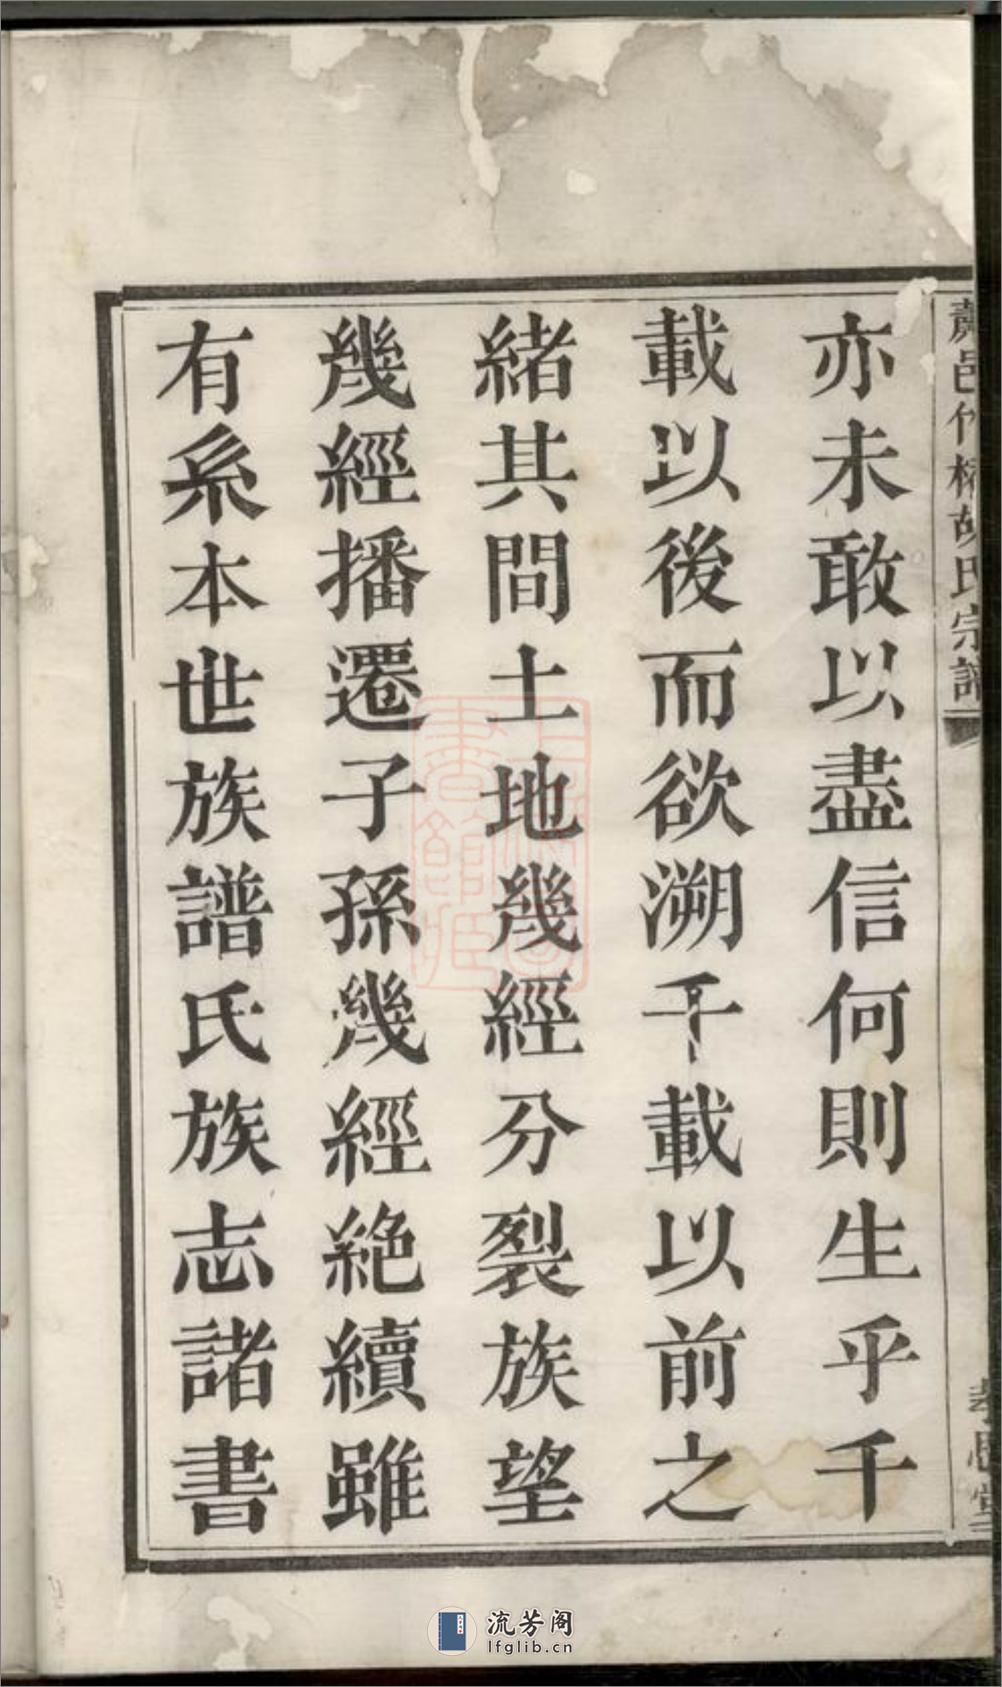 蕭邑竹橋胡氏宗譜
孝思堂
亦未敢以盡信何則生乎千
載以後而欲溯千載以前之
緒其間土地幾經分裂族望
幾經播遷子孫幾經絶續雖
有系本世族譜氏族志諸書
流芳阁
lfglib.cn